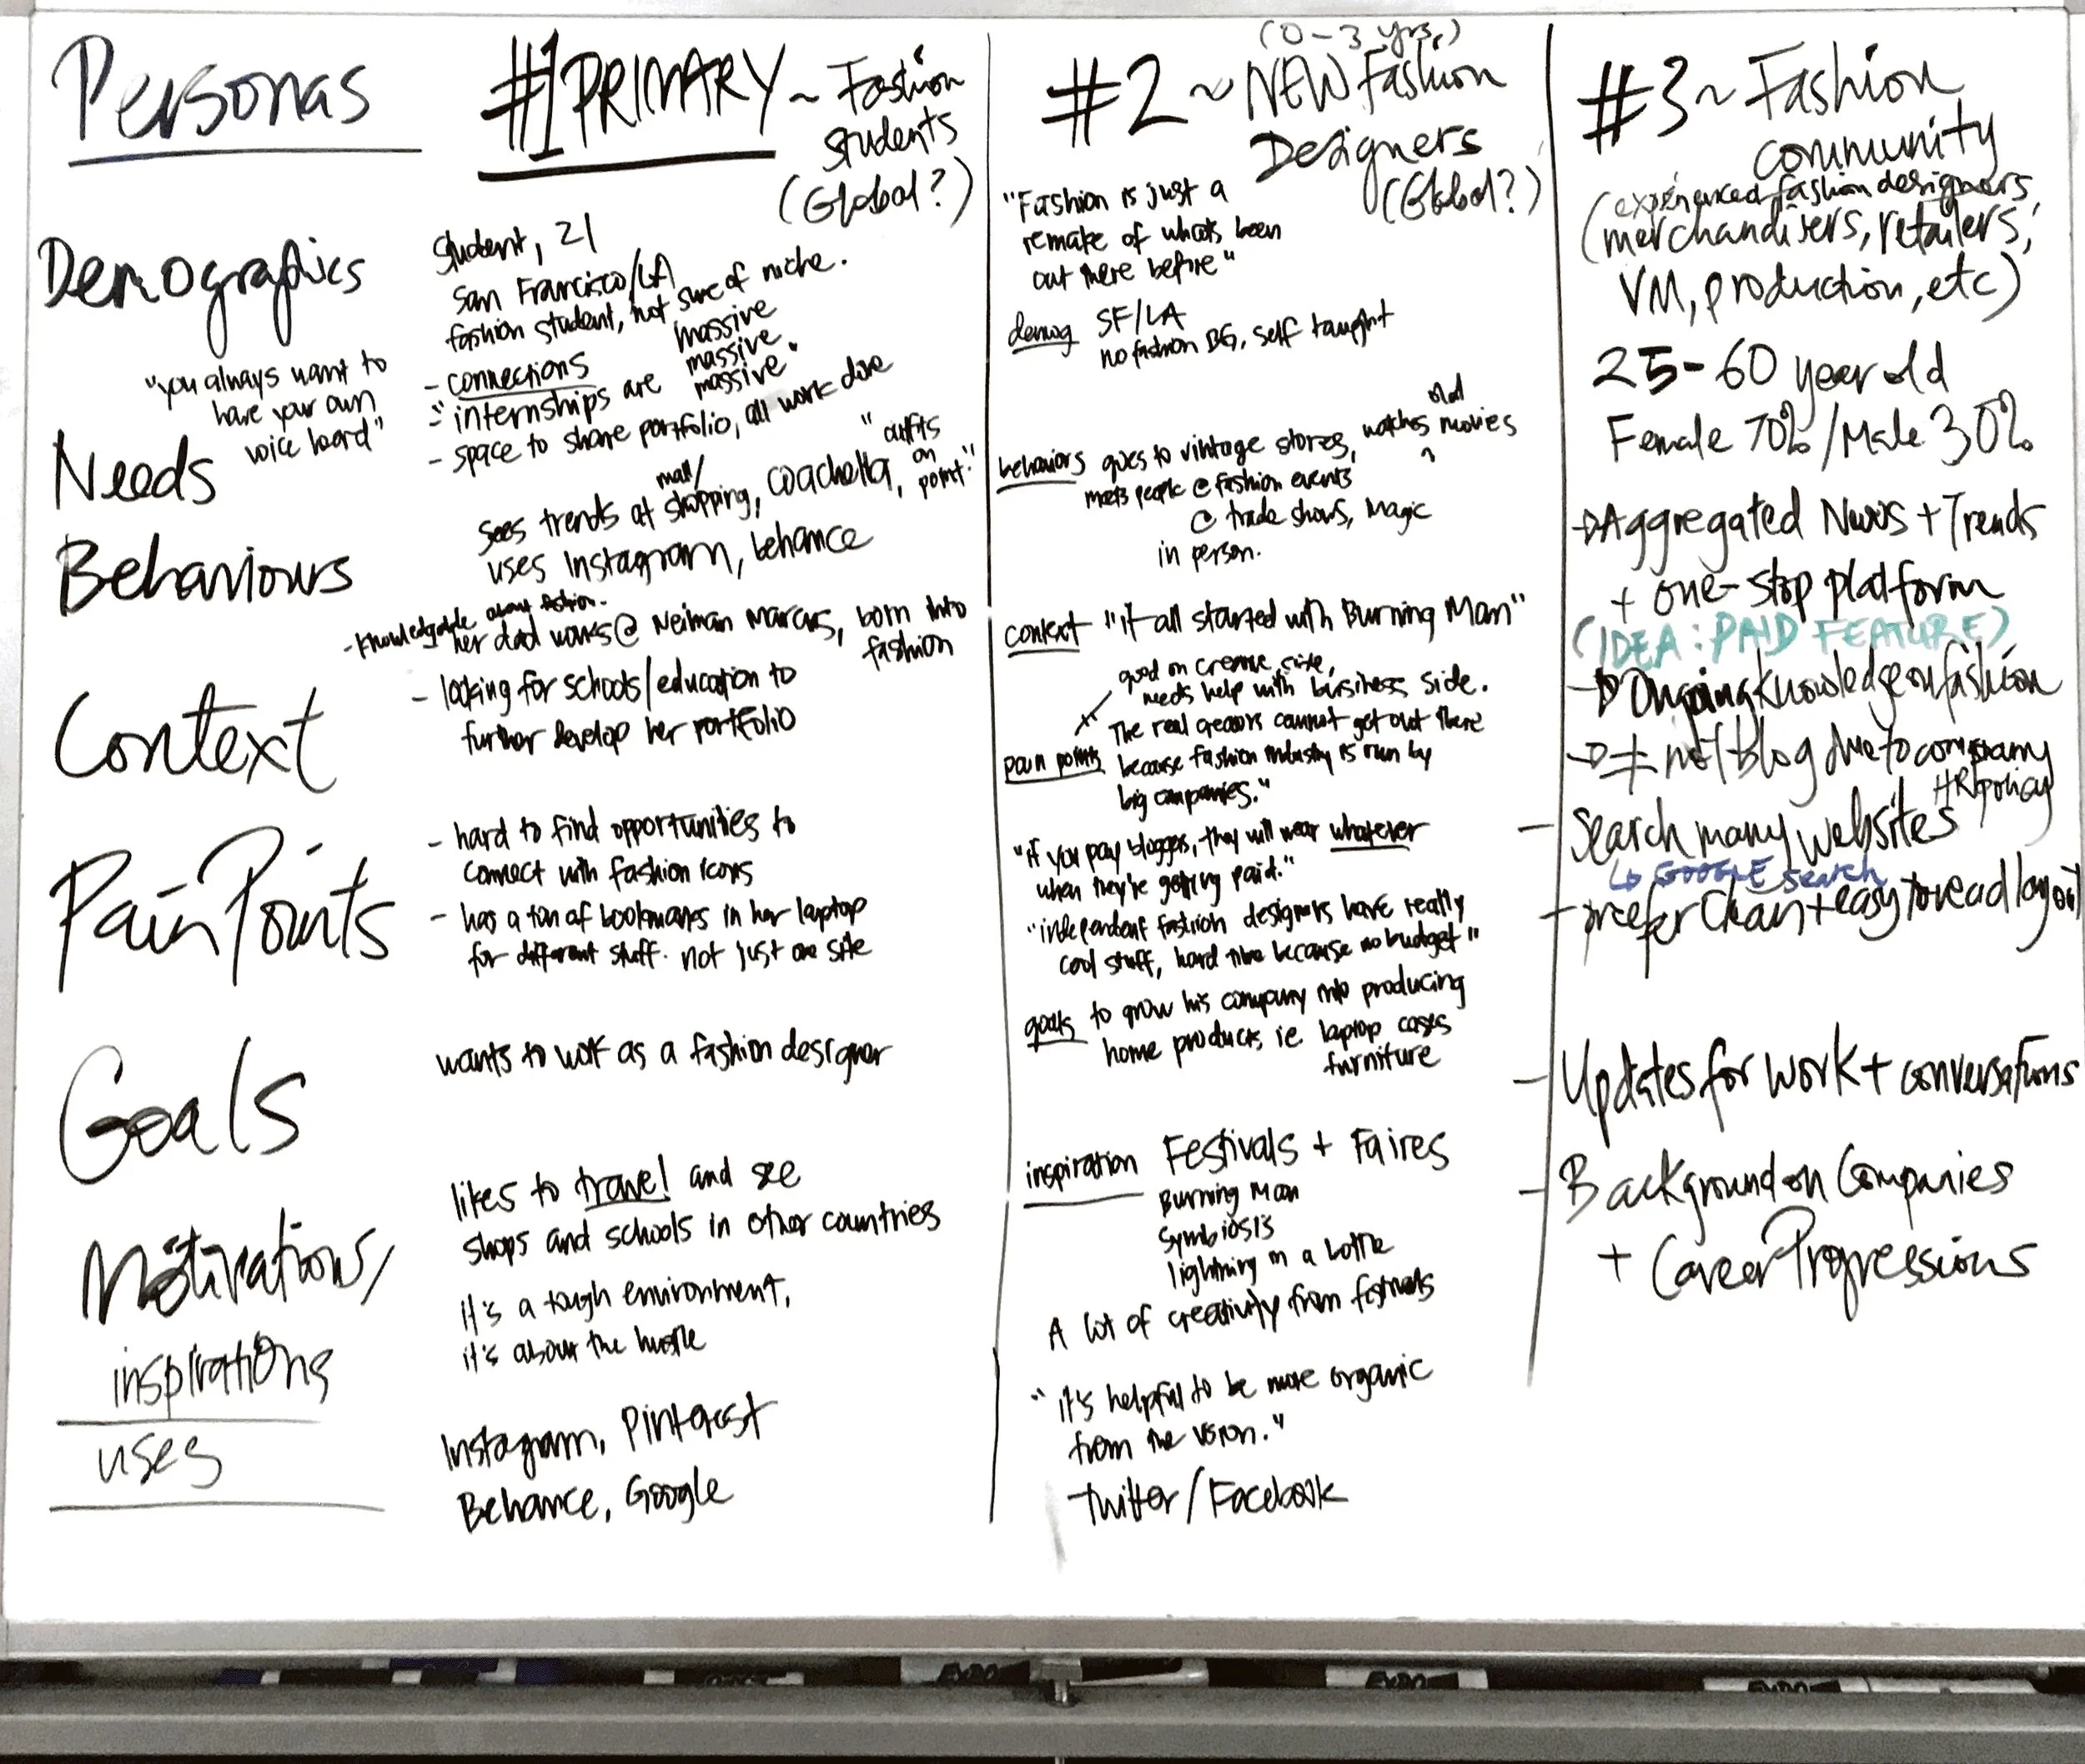 Personas
Demographics
"you always want to
have your own
voice heard"
Needs
Behaviours
Context
Pain Points
Goals
Motivations/
inspirations
uses
#1 PRIMARY ~ Fashion
students
(Global?)
Student, 21
San Francisco/LA
fashion student, not sure of niche.
- connections
- internships are massive
massive
massive.
- space to share portfolio, all work done
sees trends at mall/shopping, coachella, "outfits
on
point."
uses Instagram, behance
- knowledgable about fashion.
her dad works @ Neiman Marcus, born into
fashion
- looking for schools/education to
further develop her portfolio
- hard to find opportunities to
connect with fashion icons
- has a ton of bookmarks in her laptop
for different stuff. not just one site
wants to work as a fashion designer
likes to travel and see
shops and schools in other countries
it's a tough environment,
it's about the hustle
Instagram, Pinterest
Behance, Google
(0-3 yrs.)
#2 ~ NEW Fashion
Designers
(Global?)
"Fashion is just a
remake of whats been
out there before"
demog SF/LA
no fashion BG, self taught
behaviors goes to vintage stores, watches old movies
meets people @ fashion events
@ trade shows, Magic
in person.
context "it all started with Burning Man"
good on creative side,
needs help with business side.
pain points The real creators cannot get out there
because fashion industry is run by
big companies."
"if you pay bloggers, they will wear whatever
when they're getting paid."
"independent fashion designers have really
cool stuff, hard time because no budget"
goals to grow his company into producing
home products, ie. laptop cases
furniture
inspiration Festivals + Faires
Burning Man
Symbiosis
lightning in a bottle
A lot of creativity from festivals
"it's helpful to be more organic
from the vision."
Twitter/Facebook
#3 ~ Fashion
community
(experienced fashion designers,
merchandisers, retailers,
VM, production, etc)
25-60 year old
Female 70% / Male 30%
→ Aggregated News + Trends
+ one-stop platform
(IDEA: PAID FEATURE)
→ Ongoing knowledge on fashion
→ ≠ not blog due to company
HR policy
- Search many websites
↳ GOOGLE search
- prefer clean + easy to read layout
- Updates for work + conversations
- Background on Companies
+ Career Progressions
EXPO
EXPO
EXPO